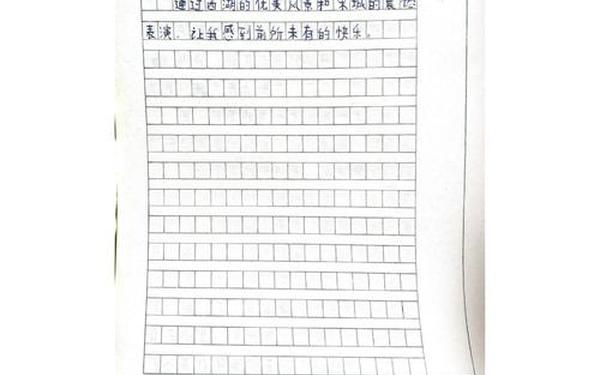 通过西湖的优美风景和宋城的震撼
表演，让我感到前所未有的快乐。